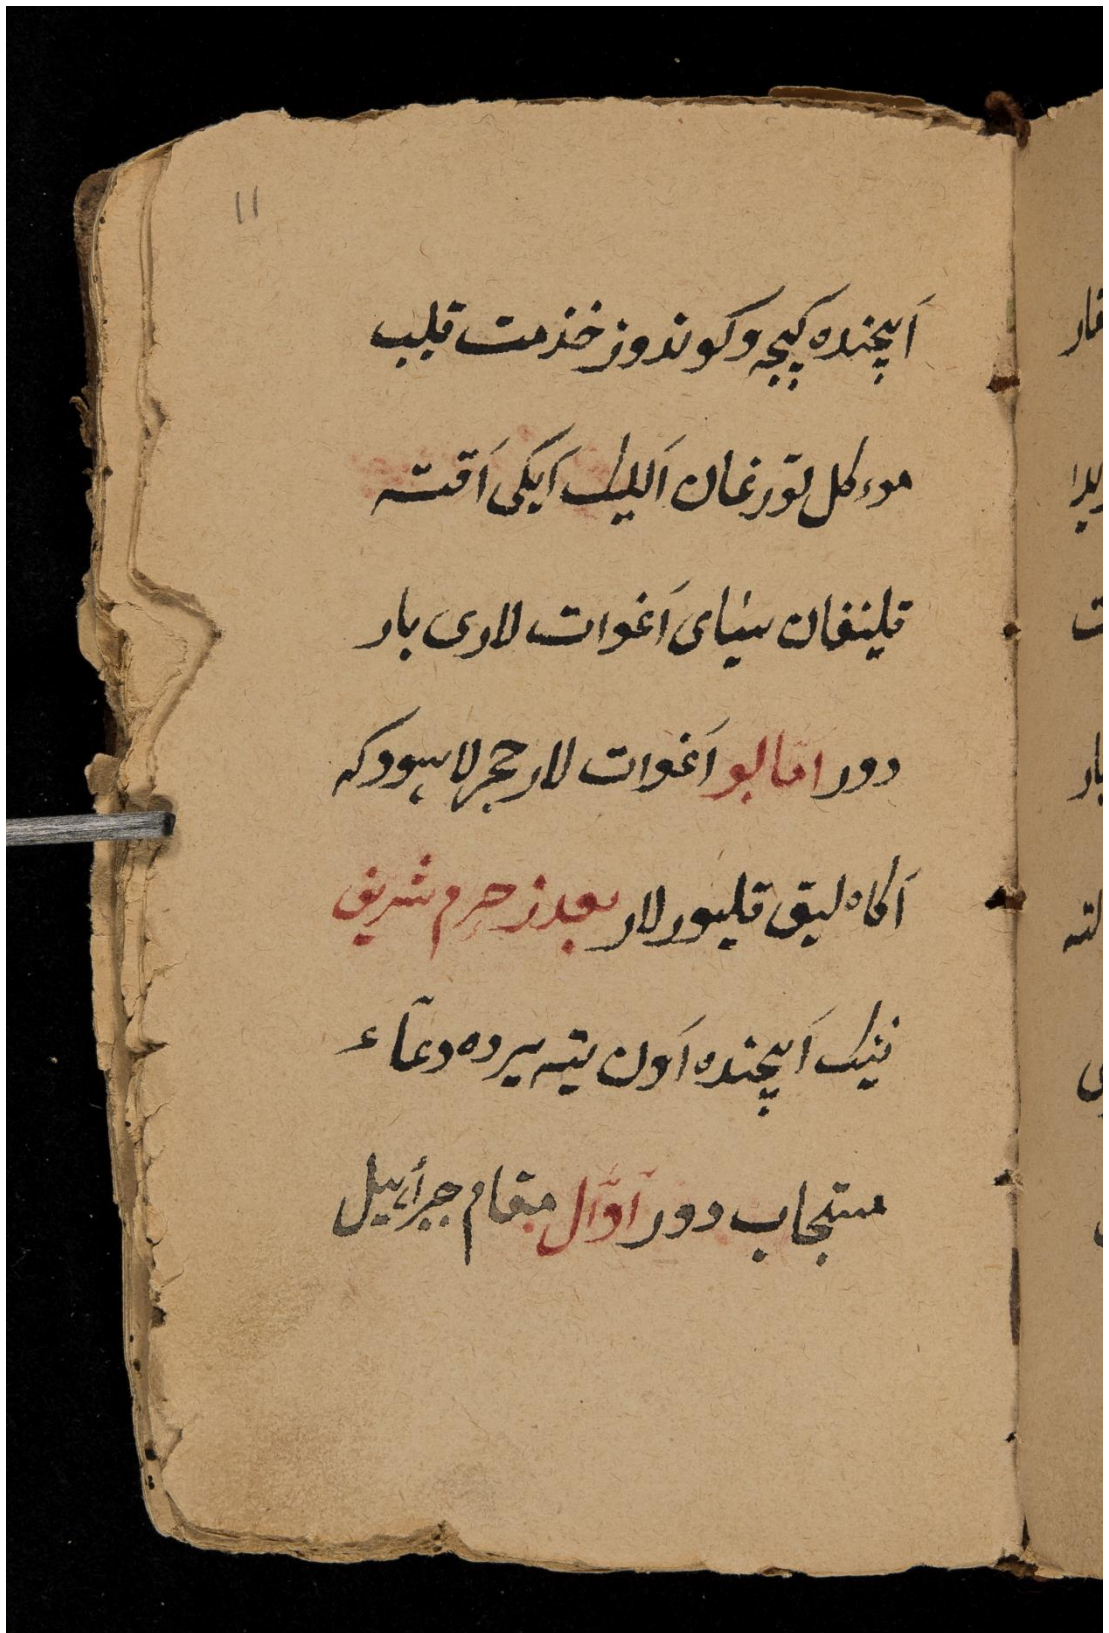 11
اَیچنده کیچه و کوندوز خذمت قلیب
موءکل تورغان اَللیک اَیکی اَقتـه
قلینغان سنای اَغوات لاری بار
دور اما بو اَغوات لار حجرلا یبوردکه
اَکاه لیق قلیور لار بعدز حرم شریف
نینک اَیچنده اَون یته یرده دعآء
مستجاب دور اَوّال مقام جبرأییل